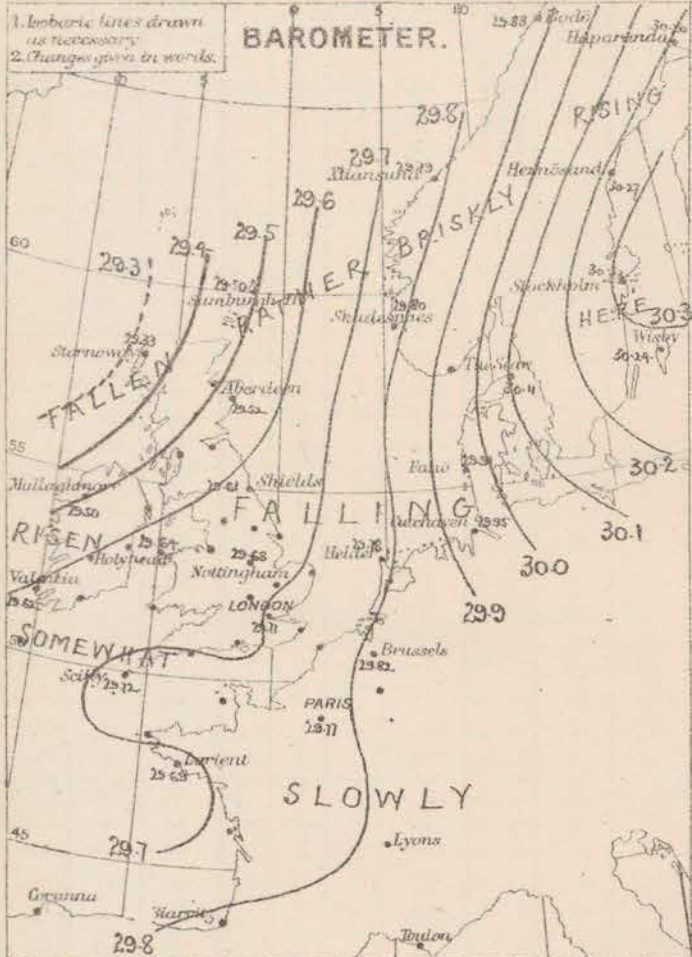 1. Isobaric lines drawn
as necessary
2. Changes given in words.
BAROMETER.
10
5
0
5
10
29.88
Bodö
Haparanda
RISING
29.8
29.7
Xtiansund
Hernösand
30.27
29.6
BRISKLY
29.5
29.4
29.3
60
29.50
Sumburgh H
RATHER
29.80
Skudesnaes
Stockholm
HERE
30.3
Wisby
30.29
29.33
Stornoway
FALLEN
The Scaw
30.11
Aberdeen
29.52
55
Fanö
30.2
Mullaghmore
29.50
29.61
Shields
FALLING
30.1
Cuxhaven
29.95
RISEN
Holyhead
29.68
Nottingham
Helder
29.78
30.0
Valentia
LONDON
29.71
29.9
SOMEWHAT
Brussels
29.82
Scilly
29.72
PARIS
29.77
Lorient
29.69
SLOWLY
45
29.7
Lyons
Corunna
Biarritz
29.8
Toulon